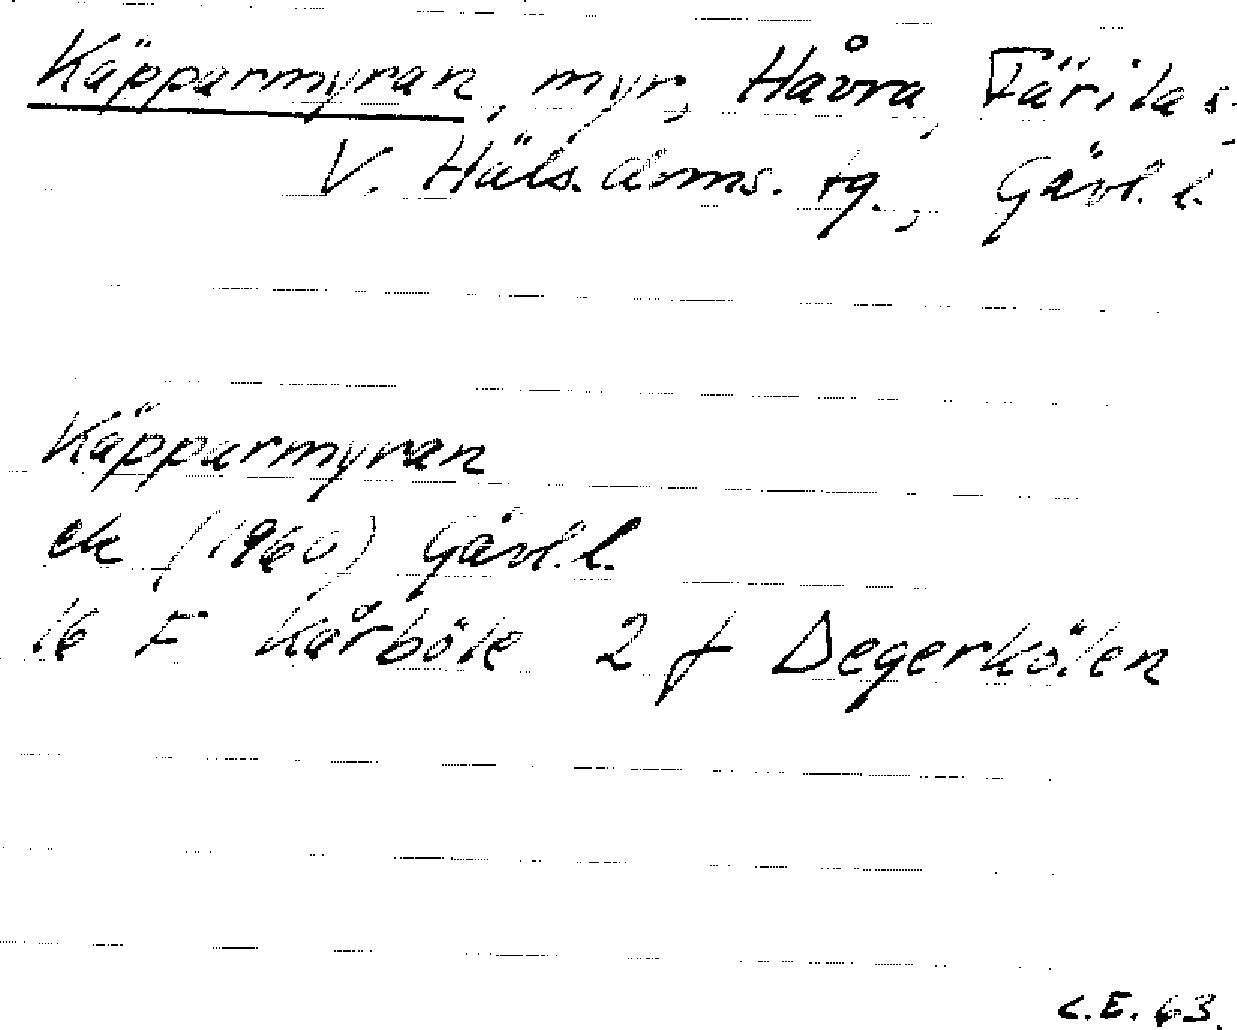 Käpparmyran, myr, Håvra, Färila s.
V. Häls. doms. tg., Gävl. l.
Käpparmyran
ek (1960) Gävl. l.
16 F Kårböle 2 f Degerkölen
C.E. 63.